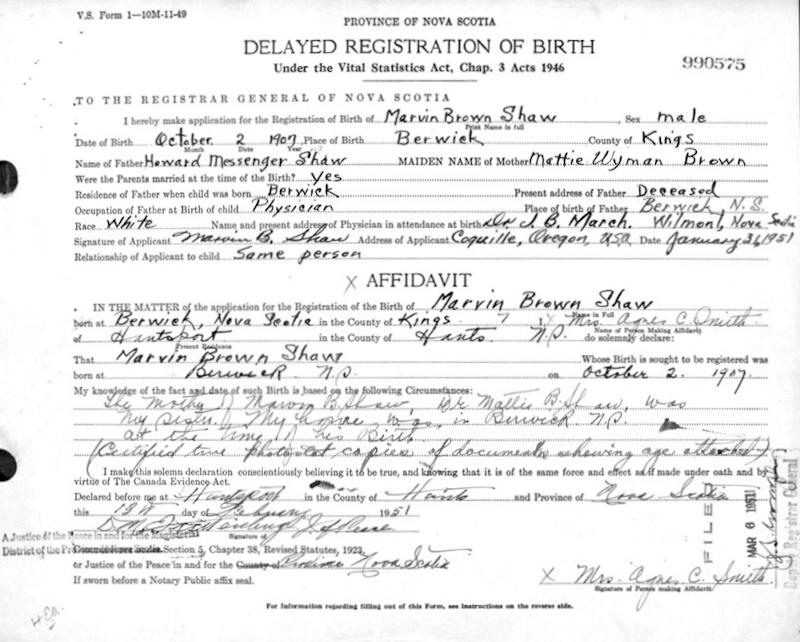 V.S. Form 1—10M-11-49
PROVINCE OF NOVA SCOTIA
DELAYED REGISTRATION OF BIRTH
Under the Vital Statistics Act, Chap. 3 Acts 1946
990575
TO THE REGISTRAR GENERAL OF NOVA SCOTIA
I hereby make application for the Registration of Birth of Marvin Brown Shaw, Sex male
Print Name in full
Date of Birth October 2 1907 Place of Birth Berwick County of Kings
Month Date Year
Name of Father Howard Messenger Shaw MAIDEN NAME of Mother Mattie Wyman Brown
Were the Parents married at the time of the Birth? Yes
Residence of Father when child was born Berwick Present address of Father Deceased
Occupation of Father at Birth of child Physician Place of birth of Father Berwick N.S.
Race White Name and present address of Physician in attendance at birth Dr. J. B. March. Wilmont, Nova Scotia
Signature of Applicant Marvin B. Shaw Address of Applicant Coquille, Oregon, USA Date January 31, 1951
Relationship of Applicant to child Same person
X AFFIDAVIT
IN THE MATTER of the application for the Registration of the Birth of Marvin Brown Shaw
Name in Full
born at Berwick, Nova Scotia in the County of Kings I, Mrs. Agnes C. Smith
Name of Person Making Affidavit
of Hantsport in the County of Hants N.S. do solemnly declare:
Present Residence
That Marvin Brown Shaw Whose Birth is sought to be registered was
born at Berwick N.S. on October 2. 1907.
My knowledge of the fact and date of such Birth is based on the following Circumstances:
The Mother of Marvin B. Shaw, Mattie B. Shaw, was
my sister. My home was in Berwick N.S.
at the time of his Birth.
(Certified true photostat copies of documents showing age attached)
I make this solemn declaration conscientiously believing it to be true, and knowing that it is of the same force and effect as if made under oath and by
virtue of The Canada Evidence Act.
Declared before me at Hantsport in the County of Hants and Province of Nova Scotia
this 13th day of February 1951
Signature of
A Justice of the Peace in and for the Magisterial
District of the Section 5, Chapter 38, Revised Statutes, 1923,
or Justice of the Peace in and for the County of Province Nova Scotia
If sworn before a Notary Public affix seal.
X Mrs. Agnes C. Smith
Signature of Person making Affidavit
FILED
MAR 6 1951
Dep. Registrar General
For Information regarding filling out of this Form, see Instructions on the reverse side.